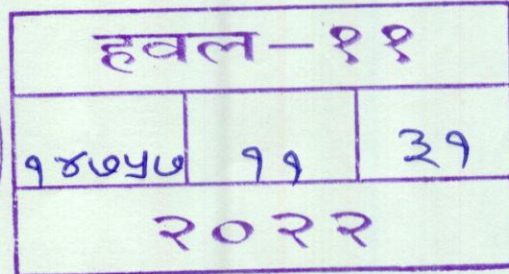 हवल-११
१४७५७ ११ ३१
२०२२